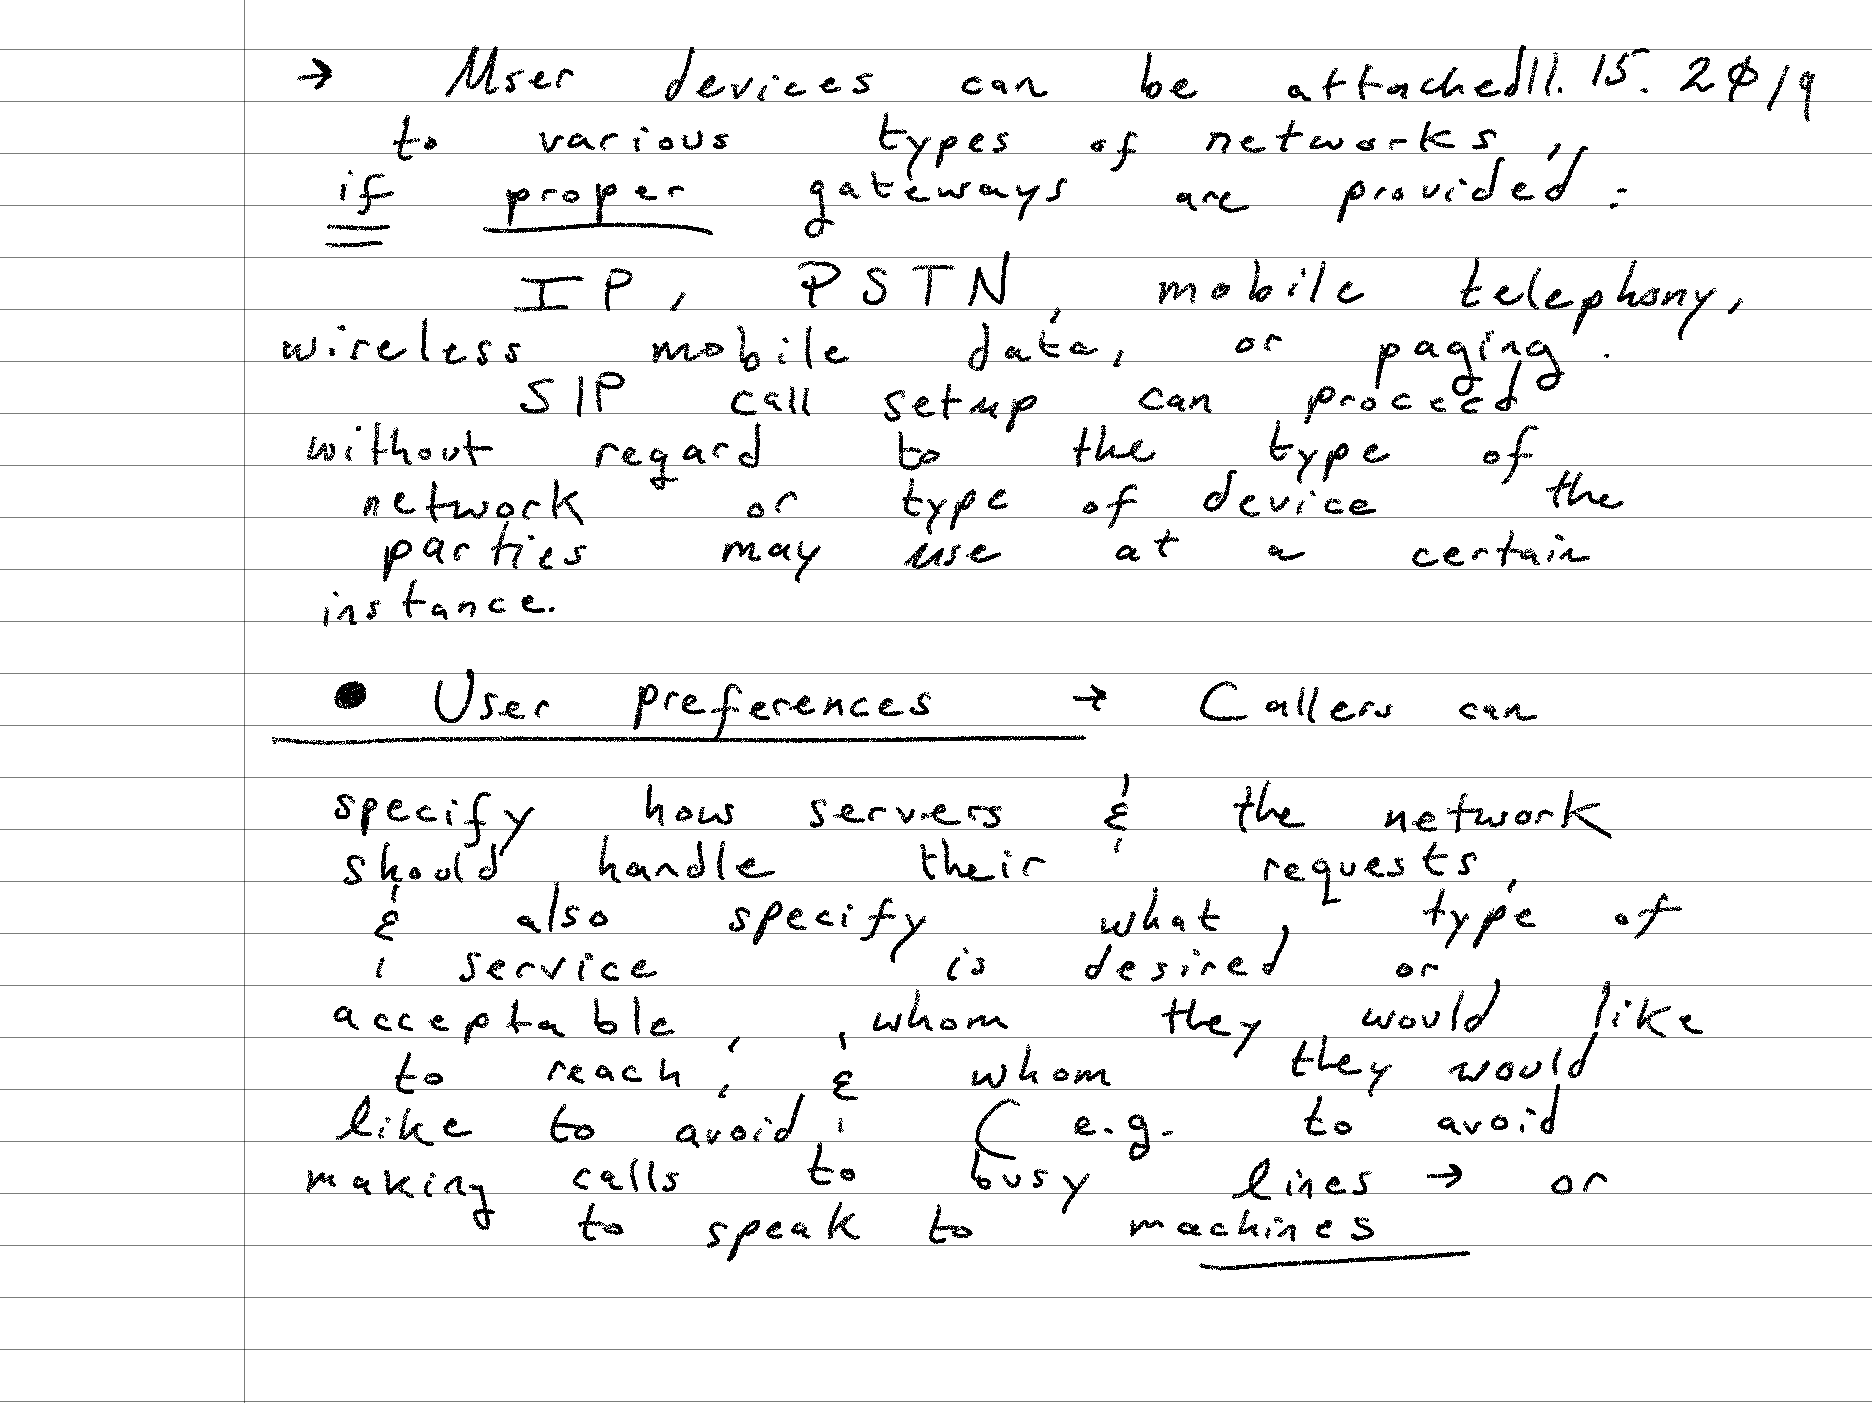 → User devices can be attached 11. 15. 2019
to various types of networks,
if proper gateways are provided:
IP, PSTN, mobile telephony,
wireless mobile data, or paging.
SIP call setup can proceed
without regard to the type of
network or type of device the
parties may use at a certain
instance.
● User preferences → Callers can
specify how servers & the network
should handle their requests,
& also specify what type of
service is desired or
acceptable, whom they would like
to reach, & whom they would
like to avoid, (e.g. to avoid
making calls to busy lines → or
to speak to machines